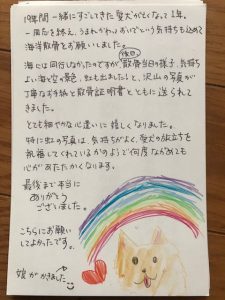 18年間一緒にすごしてきた愛犬が亡くなって1年。
一周忌を終え、うまれかわっておいでという気持ちも込めて
海洋散骨をお願いしました。
海には同行しなかったのですが後日散骨当日の様子、気持ち
よい海と空の景色、虹も出ました!と、沢山の写真が
丁寧なお手紙と散骨証明書とともに送られて
きました。
とても細やかな心遣いに嬉しくなりました。
特に虹の写真は、気持ちがよく、愛犬の旅立ちを
祝福してくれているかのようで何度ながめても
心があたたかくなります。
最後まで本当に
ありがとう
ございました。
こちらにお願い
してよかったです。
娘がかきました